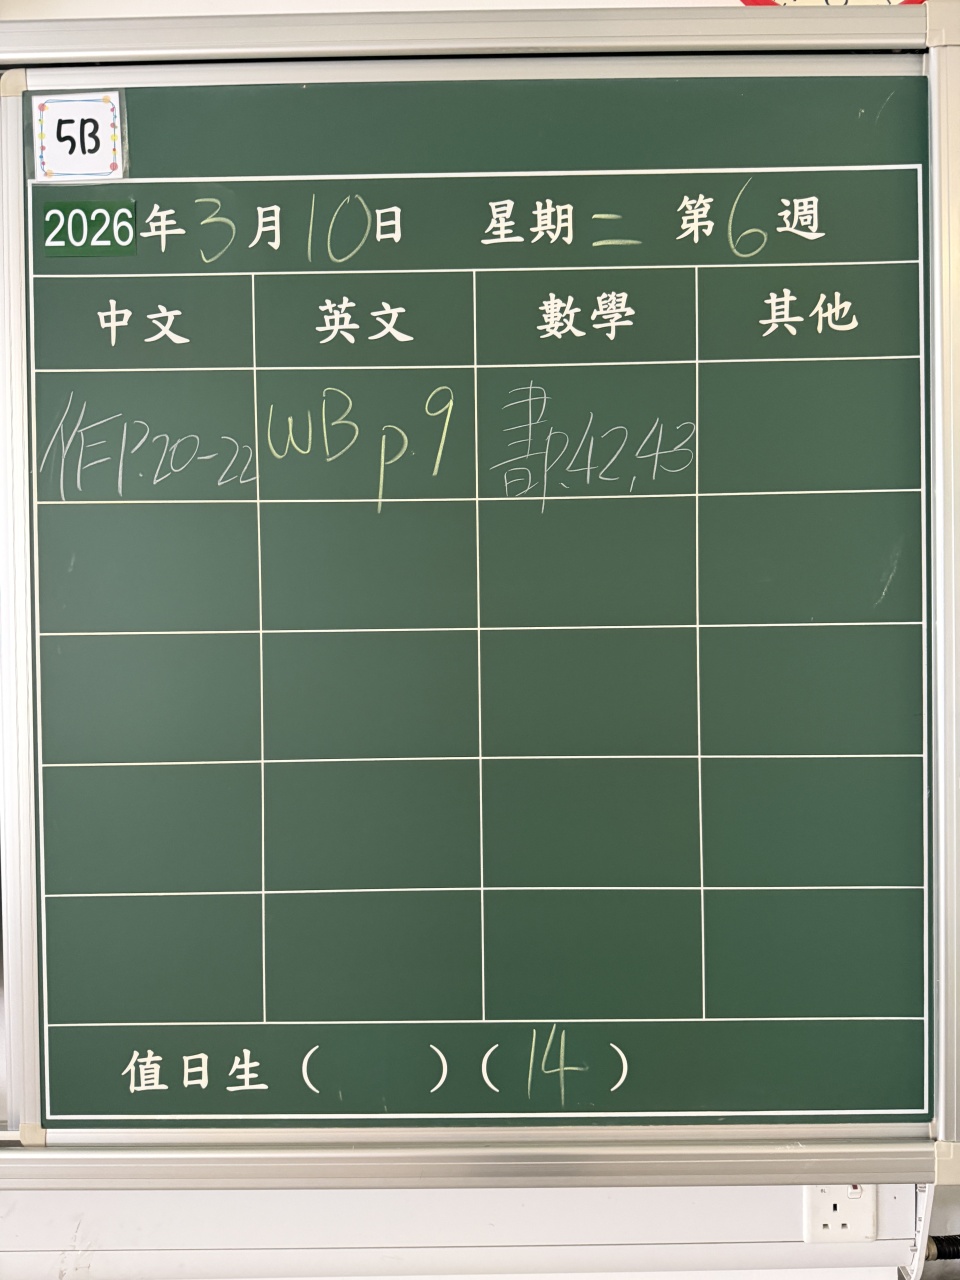 5B
2026年3月10日 星期二 第6週
中文 英文 數學 其他
作P.20-22 WB p.9 書P.42,43
值日生( )(14)